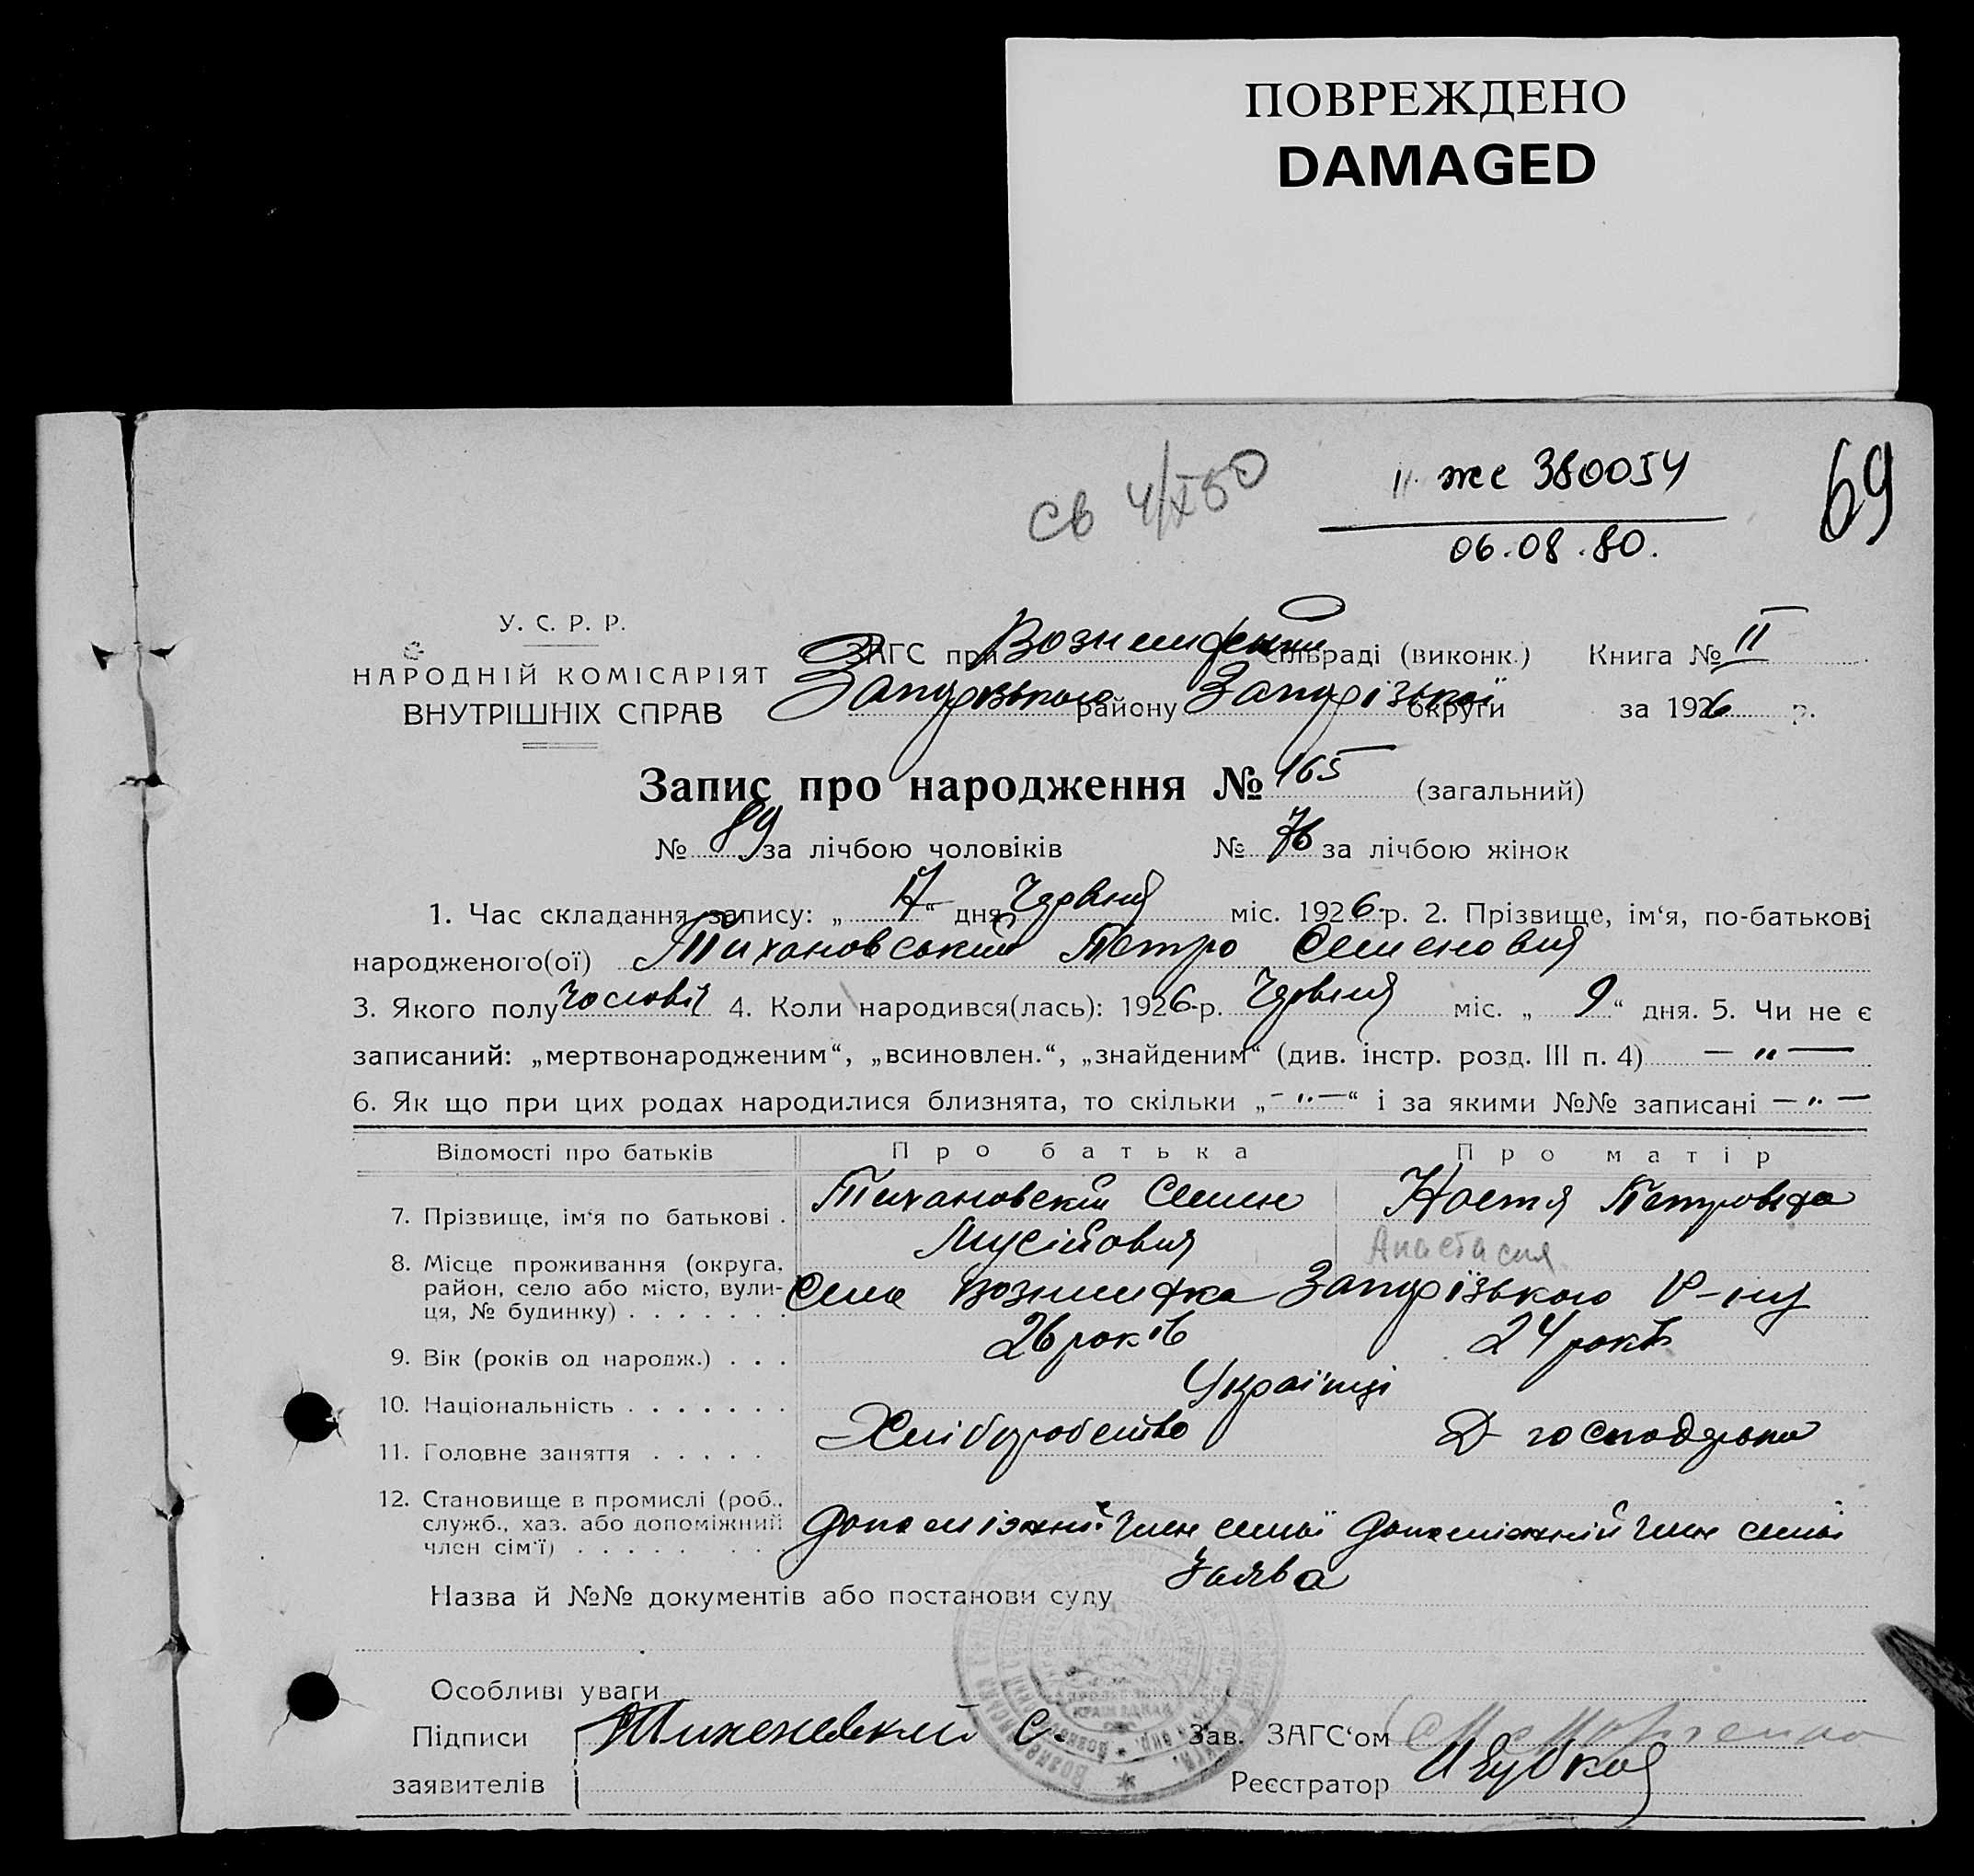 ПОВРЕЖДЕНО
DAMAGED
св 4/X 80
II же 380054
06.08.80.
69
У. С. Р. Р.
НАРОДНІЙ КОМІСАРІЯТ
ВНУТРІШНІХ СПРАВ
ЗАГС при сільраді (виконк.) Книга № II
району округи за 1926 р.
Запис про народження № 165 (загальний)
№ 89 за лічбою чоловіків № 76 за лічбою жінок
1. Час складання запису: „ “ дня Червня міс. 1926 р. 2. Прізвище, ім‘я, по-батькові
народженого(ої) Тихановський Петро Семенович
3. Якого полу Чоловіч 4. Коли народився(лась): 1926 р. Червня міс. „ 9 “ дня. 5. Чи не є
записаний: „мертвонародженим“, „всиновлен.“, „знайденим“ (див. інстр. розд. III п. 4) — „ —
6. Як що при цих родах народилися близнята, то скільки „ — „ — “ і за якими №№ записані — „ —
Відомості про батьків Про батька Про матір
7. Прізвище, ім‘я по батькові . Тихановский Семен Мусійович Настя Петровна
Анастасия
8. Місце проживання (округа, район, село або місто, вулиця, № будинку) . . . . . . . Село Запорізького р-ну
9. Вік (років од народж.) . . . 26 років 24 років
10. Національність . . . . . . . Українці
11. Головне заняття . . . . . Хліборобство Д господарка
12. Становище в промислі (роб., служб., хаз. або допоміжний член сім‘ї) . . . . . . . . допоміжний член семьї допоміжний член семьї
Назва й №№ документів або постанови суду Заява
Особливі уваги
Підписи заявителів Тихоновский С.
Зав. ЗАГС‘ом
Реєстратор